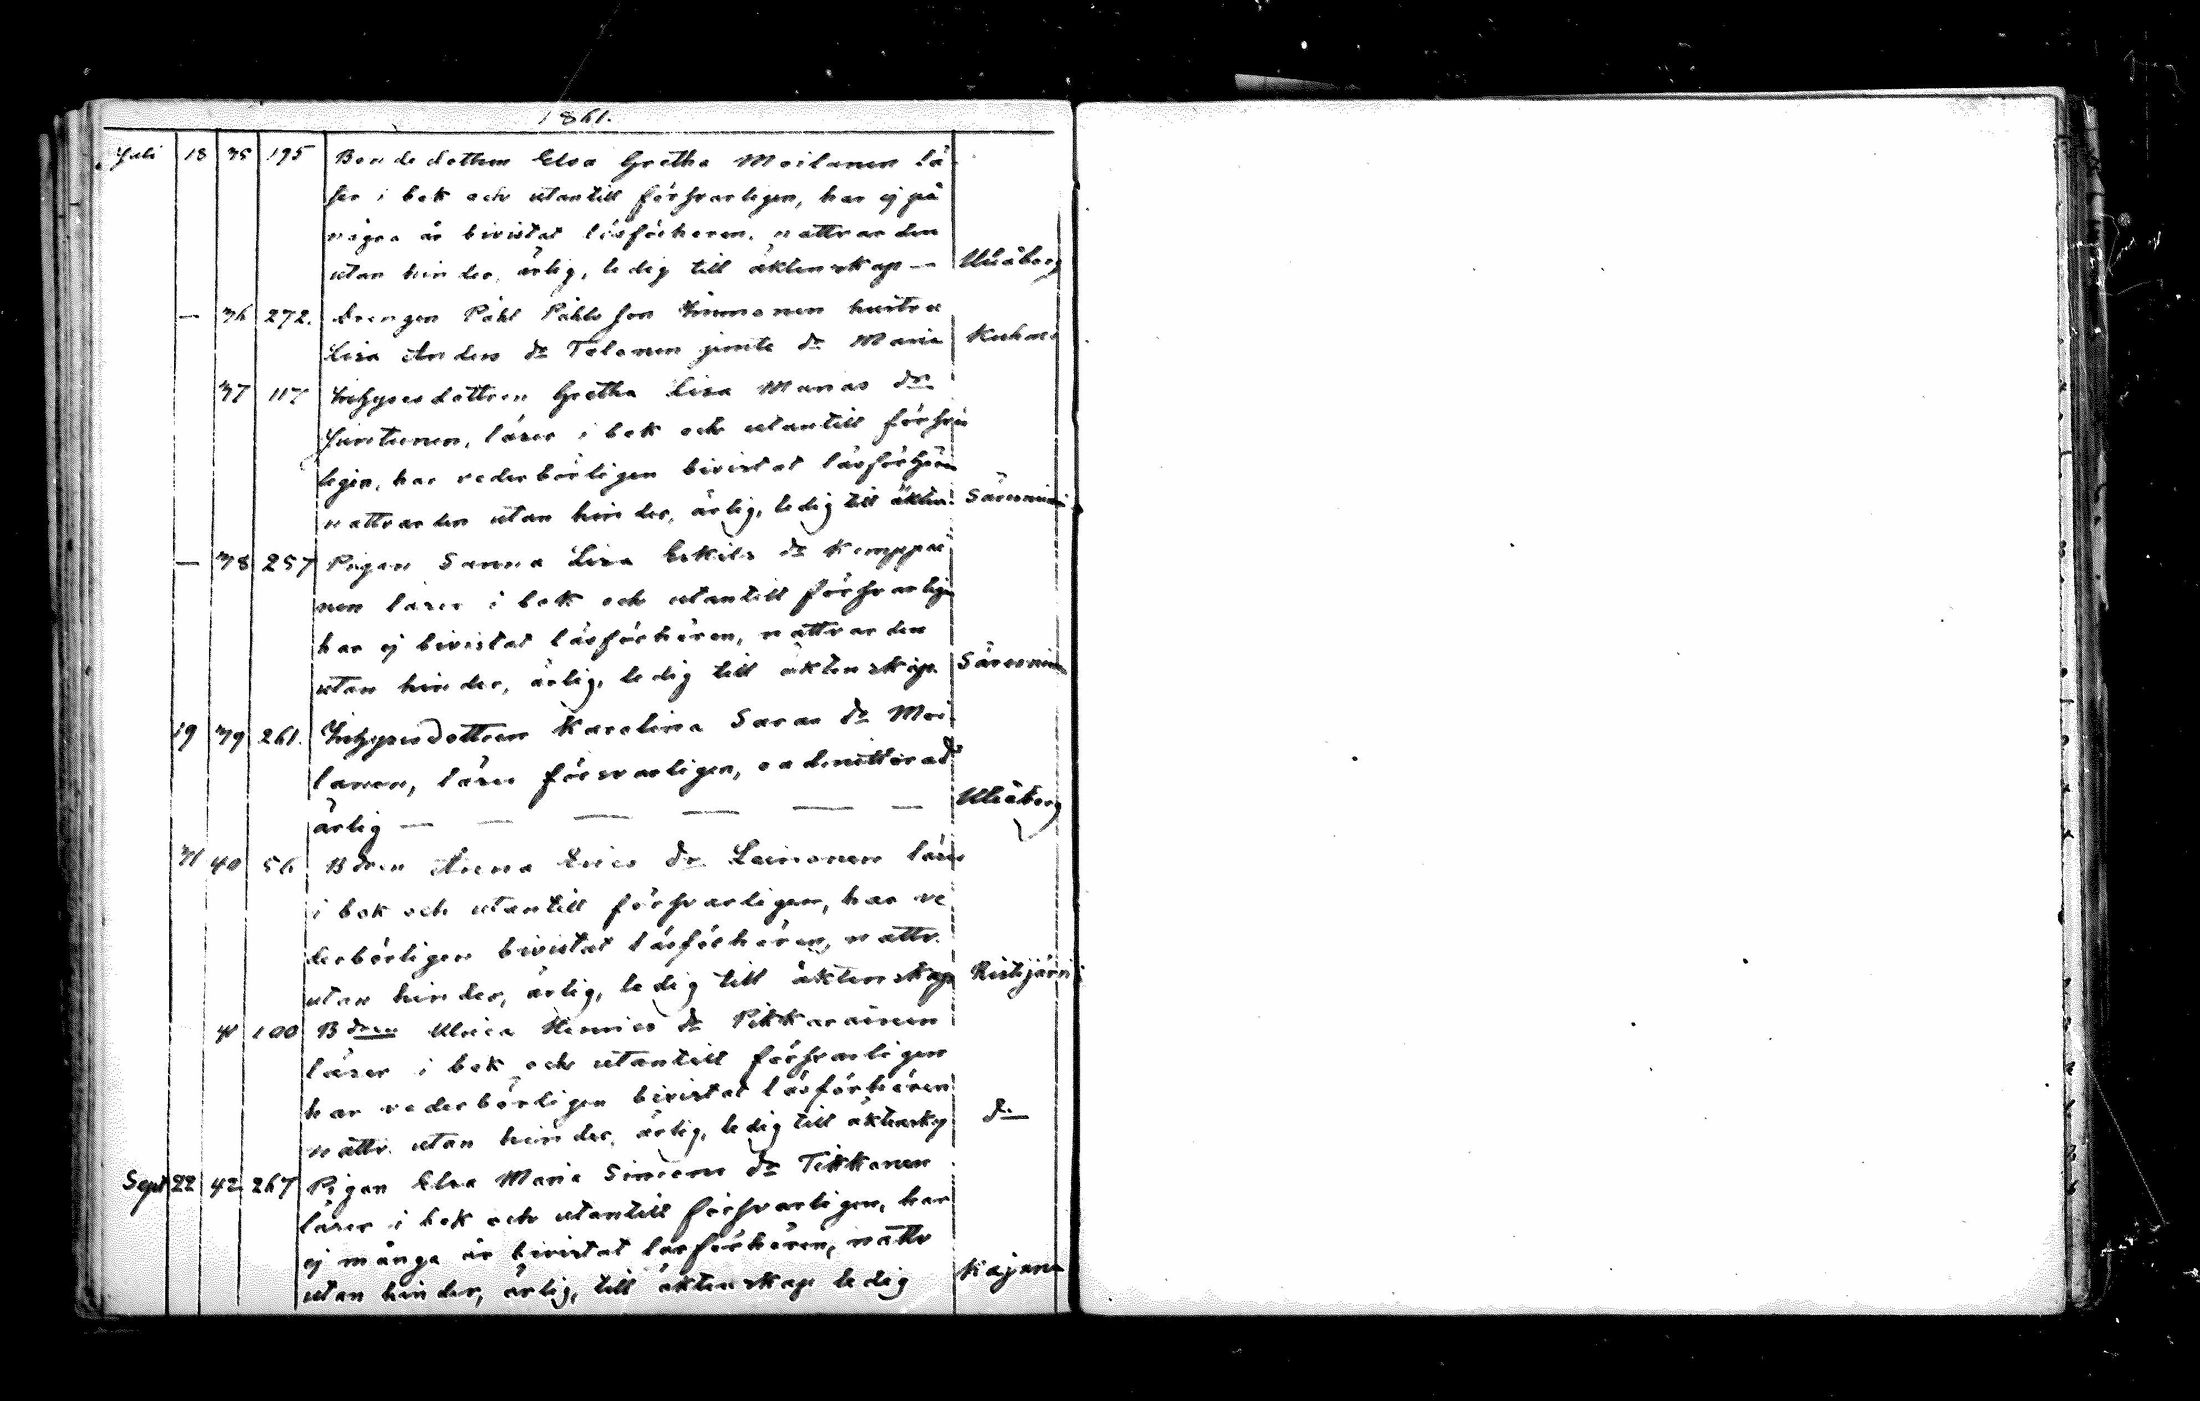 1861.
Juli 18 35 195 Bondedottren Elsa Gretha Moilanen lä-
ser i bok och utantill försvarligen, har ej på
några år bivistat läsförhören, nattvarden
utan hinder, ärlig, ledig till äktenskap — Uleåborg
— 36 272. Drengen Påhl Påhlsson Kinnunen hustru
Lisa Anders dr Tolonen jemte dr Maria Kuhmo
37 117 Inhysesdottren Gretha Lisa Manas dr
Juntunen, läser i bok och utantill försvar
ligen, har vederbörligen bivistat läsförhören
nattvarden utan hinder, ärlig, ledig till äkten. Säresniemi
— 38 257 Pigan Sanna Lisa Eskils dr Kemppai
nen läser i bok och utantill försvarligen
har ej bivistat läsförhören, nattvarden
utan hinder, ärlig, ledig till äktenskap. Säresniemi
19 39 261. Inhysesdottren Karolina Saras dr Moi-
lanen, läser försvarligen, oadmitterad
ärlig — — — — — Uleåborg
31 40 56 Bdren Anna Erics dr Leinonen läser
i bok och utantill försvarligen, har ve
derbörligen bivistat läsförhören, nattv.
utan hinder, ärlig, ledig till äktenskap Ristijärvi
41 100 Bdren Ulrica Henrics dr Pikkarainen
läser i bok och utantill försvarligen
har vederbörligen bivistat läsförhören
nattv. utan hinder, ärlig, ledig till äktenskp do
Sept 22 42 267 Pigan Elsa Maria Simons dr Tikkanen
läser i bok och utantill försvarligen, har
ej många år bivistat läsförhören, nattv
utan hinder, ärlig, till äktenskap ledig Kajana